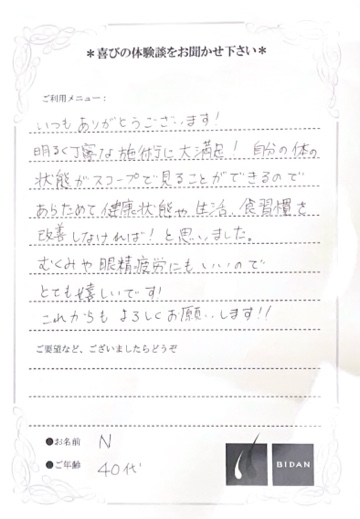 ＊喜びの体験談をお聞かせ下さい＊
ご利用メニュー：
いつもありがとうございます！
明るく丁寧な施術に大満足！自分の体の
状態がスコープで見ることができるので
あらためて健康状態や生活、食習慣を
改善しなければ！と思いました。
むくみや眼精疲労にもいいので
とても嬉しいです！
これからもよろしくお願いします！！
ご要望など、ございましたらどうぞ
●お名前 N
●ご年齢 40代
BIDAN